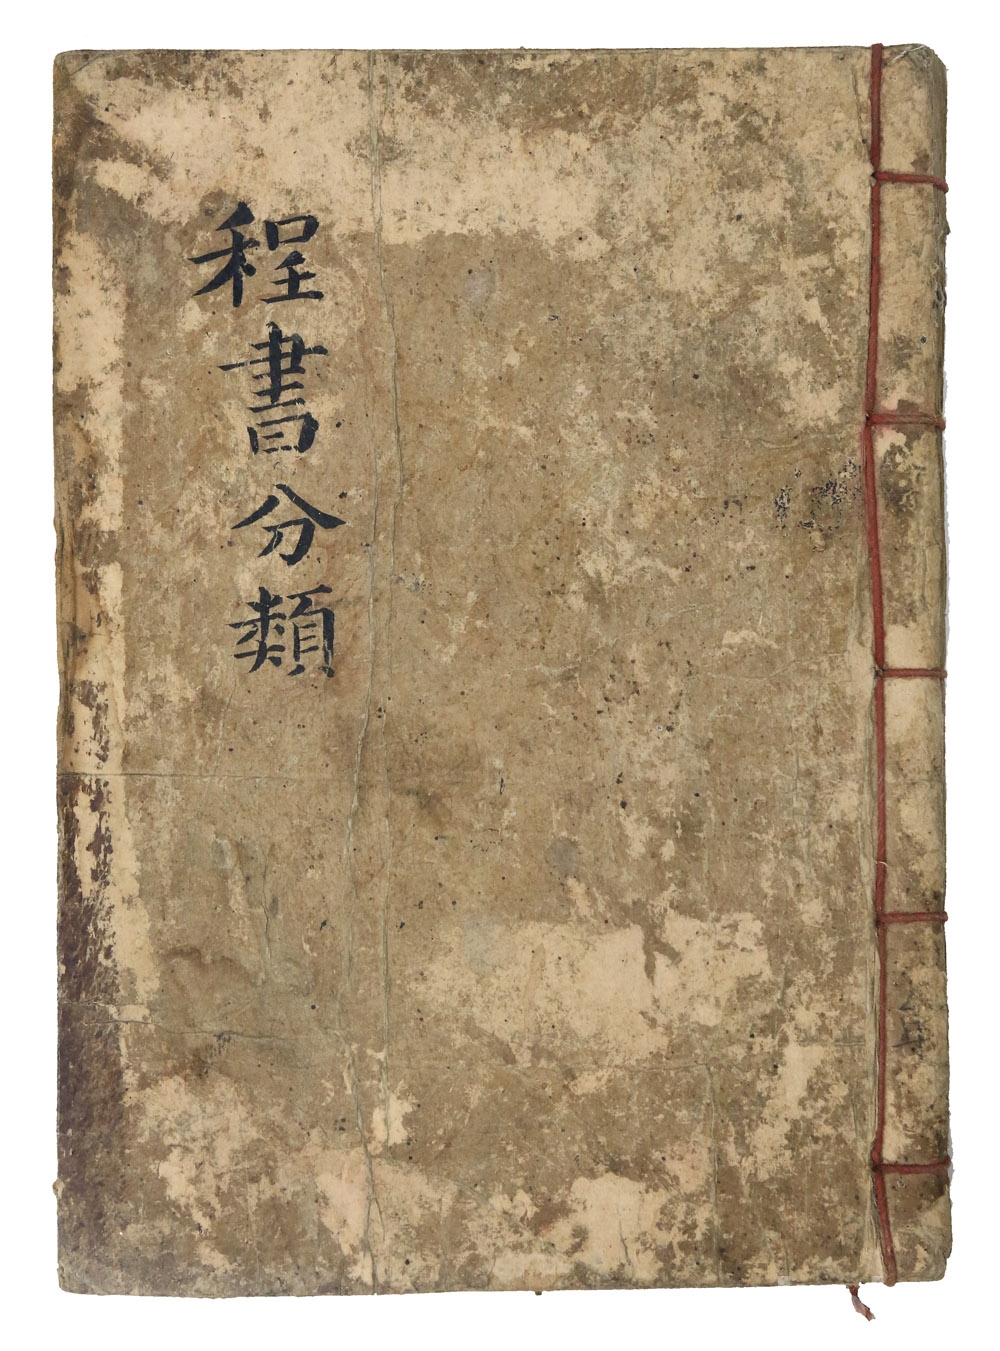 程書分類